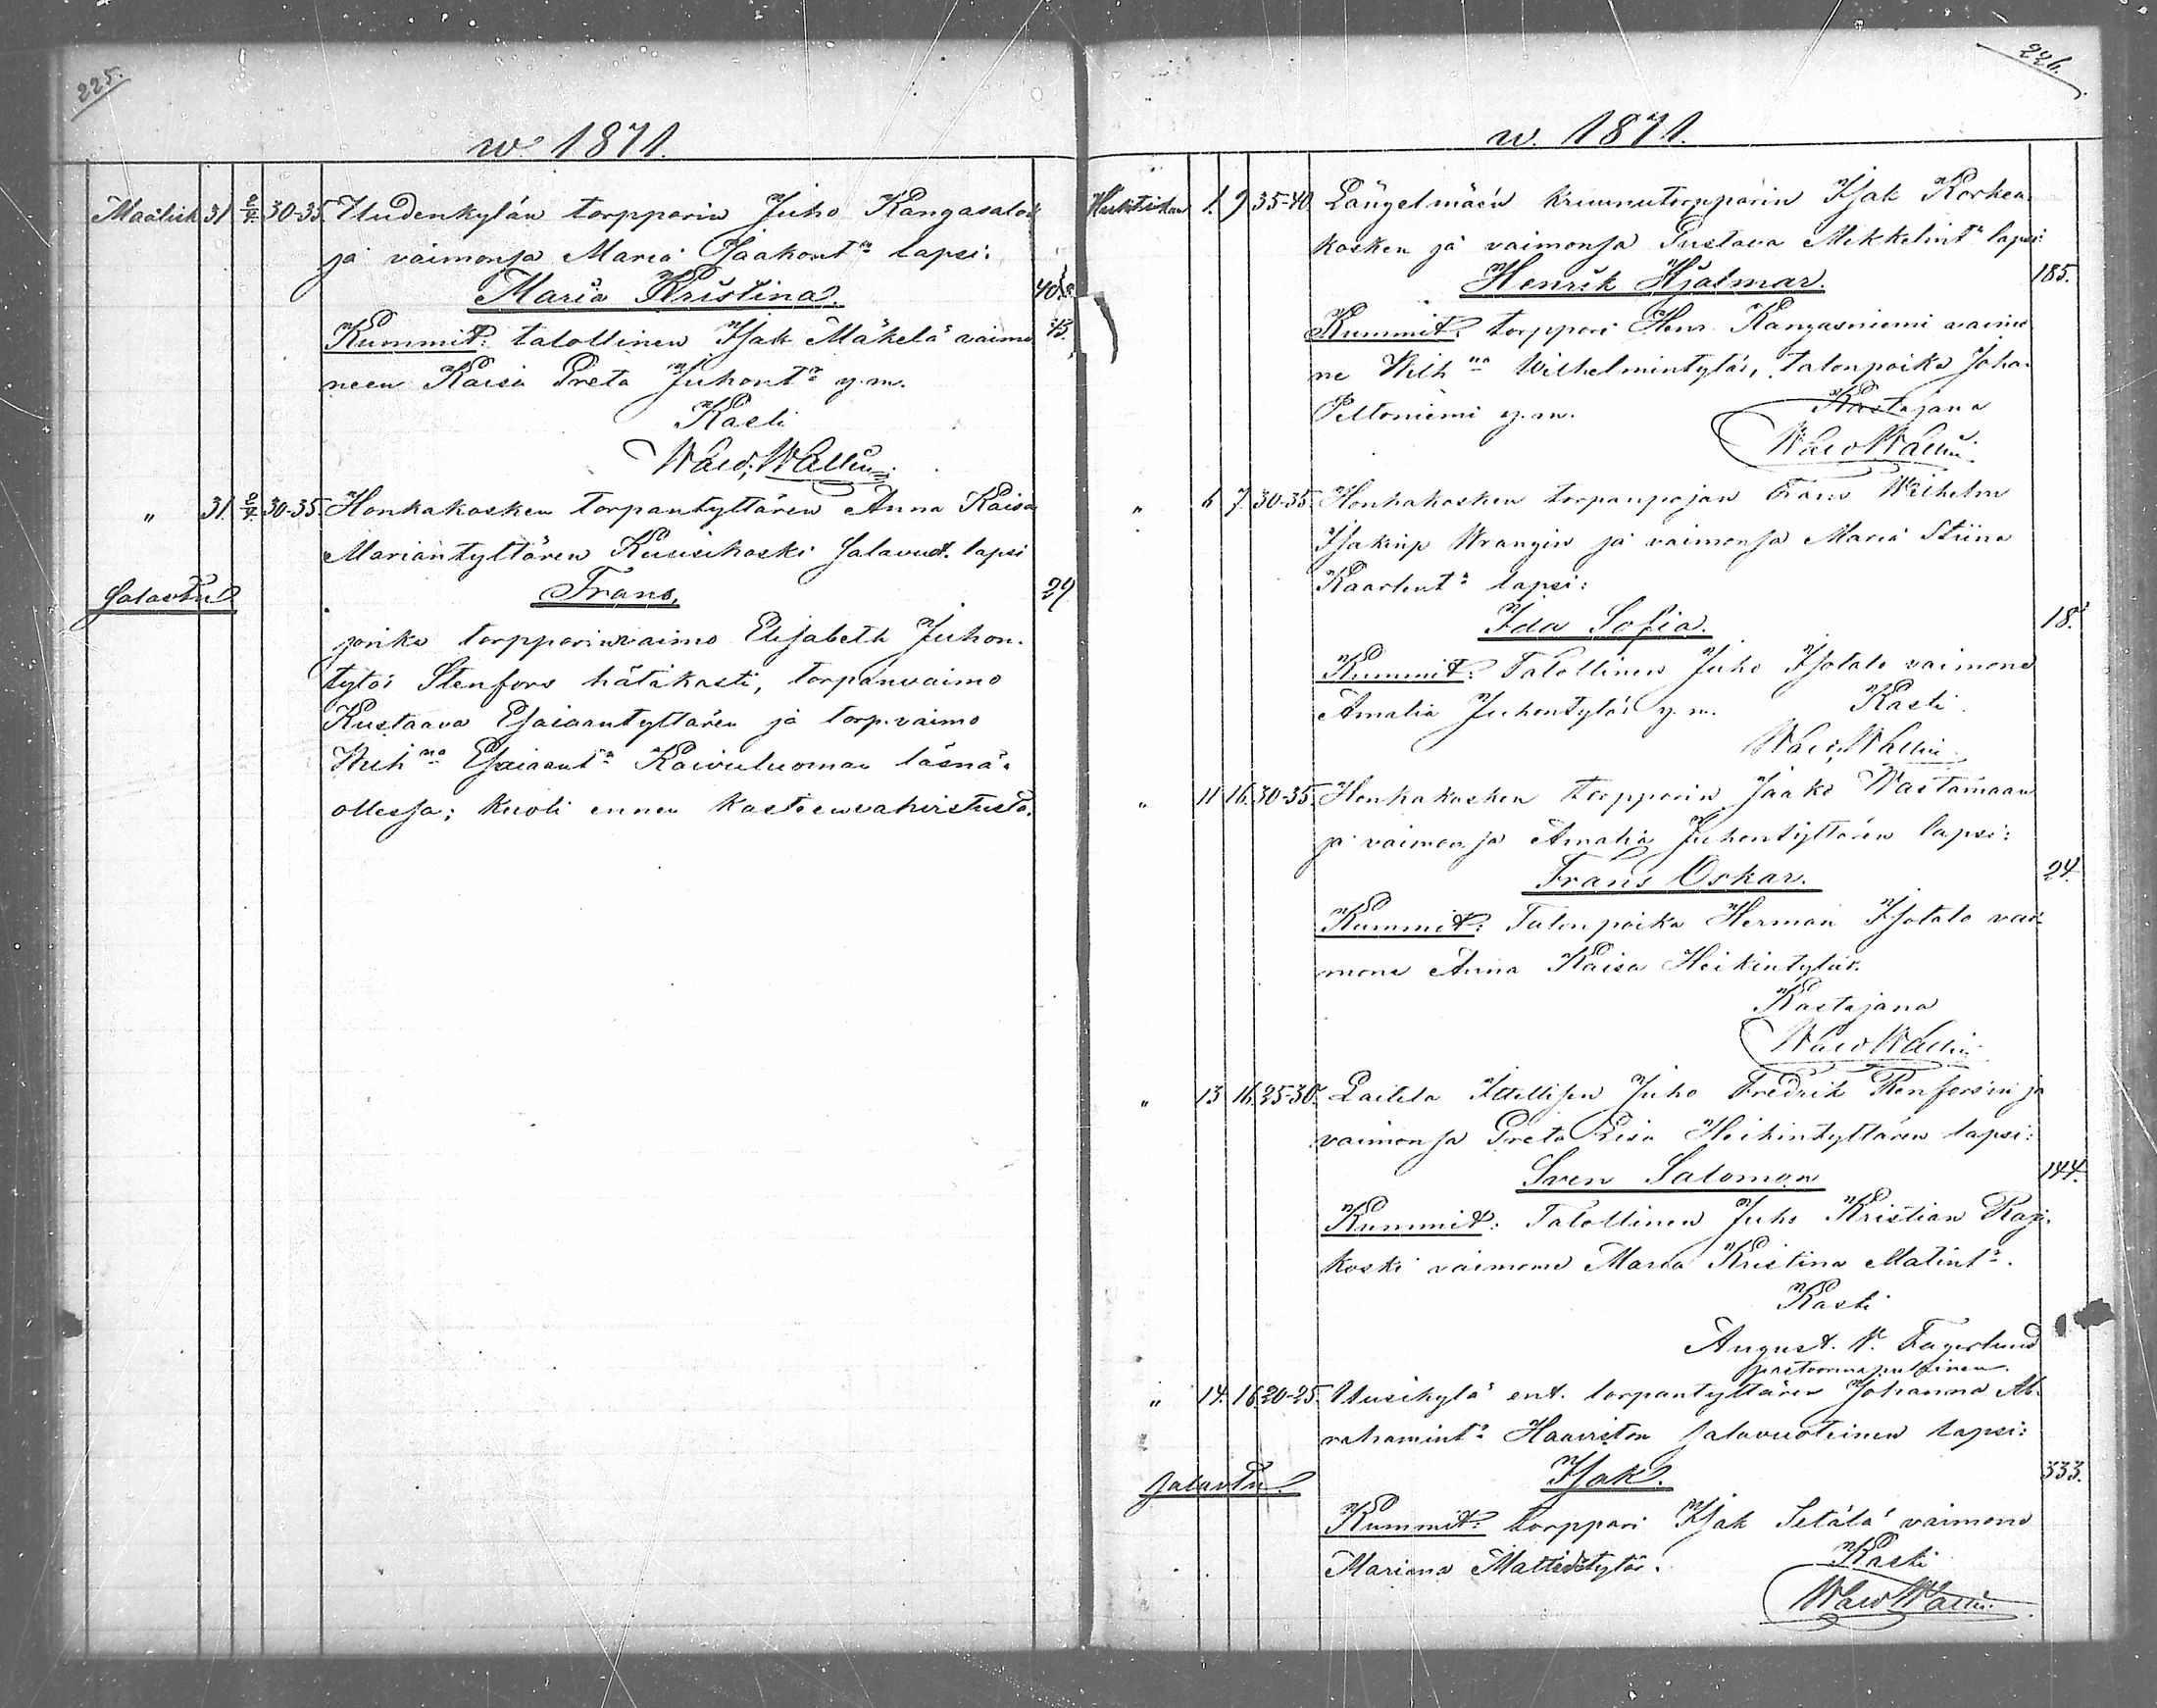 225.
w. 1871.
Maalisk. 31. 2/4. 30-35. Uudenkylän torpparin Juho Kangasalon
ja vaimonsa Maria Jaakontn lapsi:
Maria Kristina. 40
Kummit: talollinen Isak Mäkelä vaimo- 43.
neen Kaisa Greta Juhontr y.m.
Kasti
Wald. Wallin.
" 31. 2/4. 30-35. Honkakosken torpantyttären Anna Kaisa
Mariantyttären Kuusikoski salavuot. lapsi
Salavu Frans, 29
jonka torpparinvaimo Elisabeth Juhon-
tytär Stenfors hätäkasti, torpanvaimo
Kustaava Esaiaantyttären ja torp.vaimo
Wilhna Esaiaantn Kaivuluoman läsnä-
ollessa; kuoli ennen kasteenvahvistusta.
226.
w. 1871.
Huhtikuu 1. 9. 35-40. Längelmäen kruunutorpparin Isak Korkea-
kosken ja vaimonsa Gustava Mikkelintn lapsi
Henrik Hjalmar. 185.
Kummit: torppari Henr. Kangasniemi vaimo-
ne Wilhna Wilhelmintytär, talonpoika Joha-
Peltoniemi y.m. Kastajana
Wald Wallin
" 6 7. 30-35. Honkakosken torpanpojan Frans Wilhelm
Isakinp Wrangin ja vaimonsa Maria Stiina
Kaarlentn lapsi:
Ida Sofia. 18.
Kummit: Talollinen Juho Isotalo vaimone
Amalia Juhontytär y.m. Kasti
Wald. Wallin
" 11 16. 30-35. Honkakosken torpparin Jaako Wastamaan
ja vaimonsa Amalia Juhontyttären lapsi:
Frans Oskar. 24.
Kummit: Talonpoika Herman Isotalo vai-
mone Anna Kaisa Heikintytär.
Kastajana
Wald Wallin
" 13 16. 25-30. Laitila Itellisen Juho Fredrik Renforsin ja
vaimonsa Greta Lisa Heikintyttären lapsi:
Sven Salomon 144.
Kummit: Talollinen Juho Kristian Raji-
koski vaimone Maria Kristina Matintr.
Kasti
August. W. Fagerlund
pastorinapulainen.
" 14. 16. 20-25. Uusikylä ent. torpantyttären Johanna Ab-
rahamintn Haaviston salavuoteinen lapsi:
Salavtu. Isak. 333.
Kummit: torppari Isak Setälä vaimone
Mariana Mattsdtytär. Kasti
Wald Wallin.